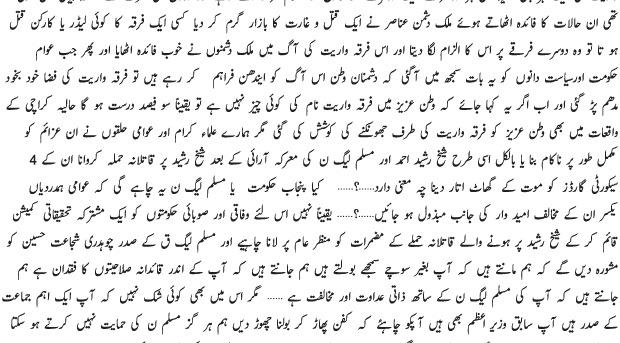 تھی ان حالات کا فائدہ اٹھاتے ہوئے ملک دشمن عناصر نے ایک قتل و غارت کا بازار گرم کر دیا کسی ایک فرقہ کا کوئی لیڈر یا کارکن قتل
ہو تا تو وہ دوسرے فرقے پر اس کا الزام لگا دیتا اور اس فرقہ واریت کی آگ میں ملک دشمنوں نے خوب فائدہ اٹھایا اور پھر جب عوام
حکومت اورسیاست دانوں کو یہ بات سمجھ میں آگئی کہ دشمنان وطن اس آگ کو ایندھن فراہم کر رہے ہیں تو فرقہ واریت کی فضا خود بخود
مدھم پڑ گئی اور اب اگر یہ کہا جائے کہ وطن عزیز میں فرقہ واریت نام کی کوئی چیز نہیں ہے تو یقینا سو فیصد درست ہو گا حالیہ کراچی کے
واقعات میں بھی وطن عزیز کو فرقہ واریت کی طرف جھونکنے کی کوشش کی گئی مگر ہمارے علماء کرام اور عوامی حلقوں نے ان عزائم کو
مکمل طور پر ناکام بنا یا بالکل اسی طرح شیخ رشید احمد اور مسلم لیگ ن کی معرکہ آرائی کے بعد شیخ رشید پر قاتلانہ حملہ کروانا ان کے 4
سیکورٹی گارڈز کو موت کے گھاٹ اتار دینا چہ معنی دارد……؟…… کیا پنجاب حکومت یا مسلم لیگ ن یہ چاہے گی کہ عوامی ہمدردیاں
یکسر ان کے مخالف امید وار کی جانب مبذول ہو جائیں……؟…… یقینا نہیں اس لئے وفاقی اور صوبائی حکومتوں کو ایک مشترکہ تحقیقاتی کمیشن
قائم کر کے شیخ رشید پر ہونے والے قاتلانہ حملے کے مضمرات کو منظر عام پر لانا چاہیے اور مسلم لیگ ق کے صدر چوہدری شجاعت حسین کو
مشورہ دیں گے کہ ہم مانتے ہیں کہ آپ بغیر سوچے سمجھے بولتے ہیں ہم جانتے ہیں کہ آپ کے اندر قائدانہ صلاحیتوں کا فقدان ہے ہم
جانتے ہیں کہ آپ کی مسلم لیگ ن کے ساتھ ذاتی عداوت اور مخالفت ہے …… مگر اس میں بھی کوئی شک نہیں کہ آپ ایک اہم جماعت
کے صدر ہیں آپ سابق وزیر اعظم بھی ہیں آپکو چاہئے کہ کفن پھاڑ کر بولنا چھوڑ دیں ہم ہر گز مسلم ن کی حمایت نہیں کرتے ہو سکتا